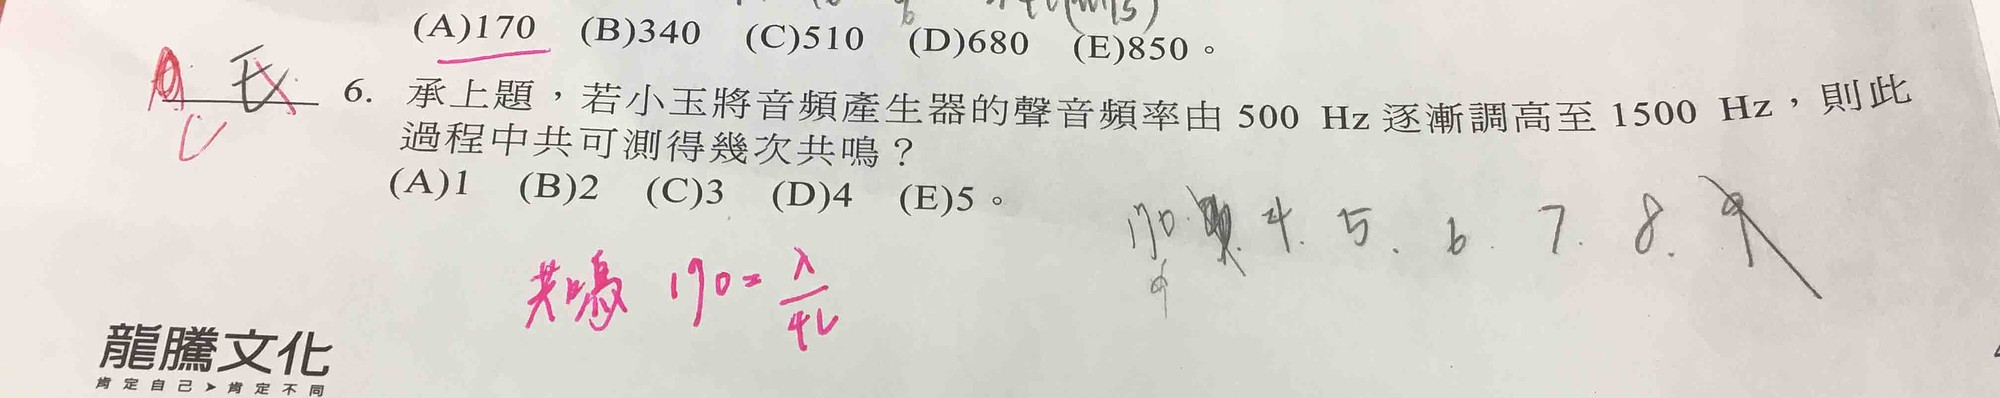 (A)170 (B)340 (C)510 (D)680 (E)850。
E
6. 承上題，若小玉將音頻產生器的聲音頻率由 500 Hz 逐漸調高至 1500 Hz，則此
過程中共可測得幾次共鳴？
(A)1 (B)2 (C)3 (D)4 (E)5。
170. 4. 5. 6. 7. 8. 9
共鳴 170 = λ/4L
龍騰文化
肯定自己➤肯定不同